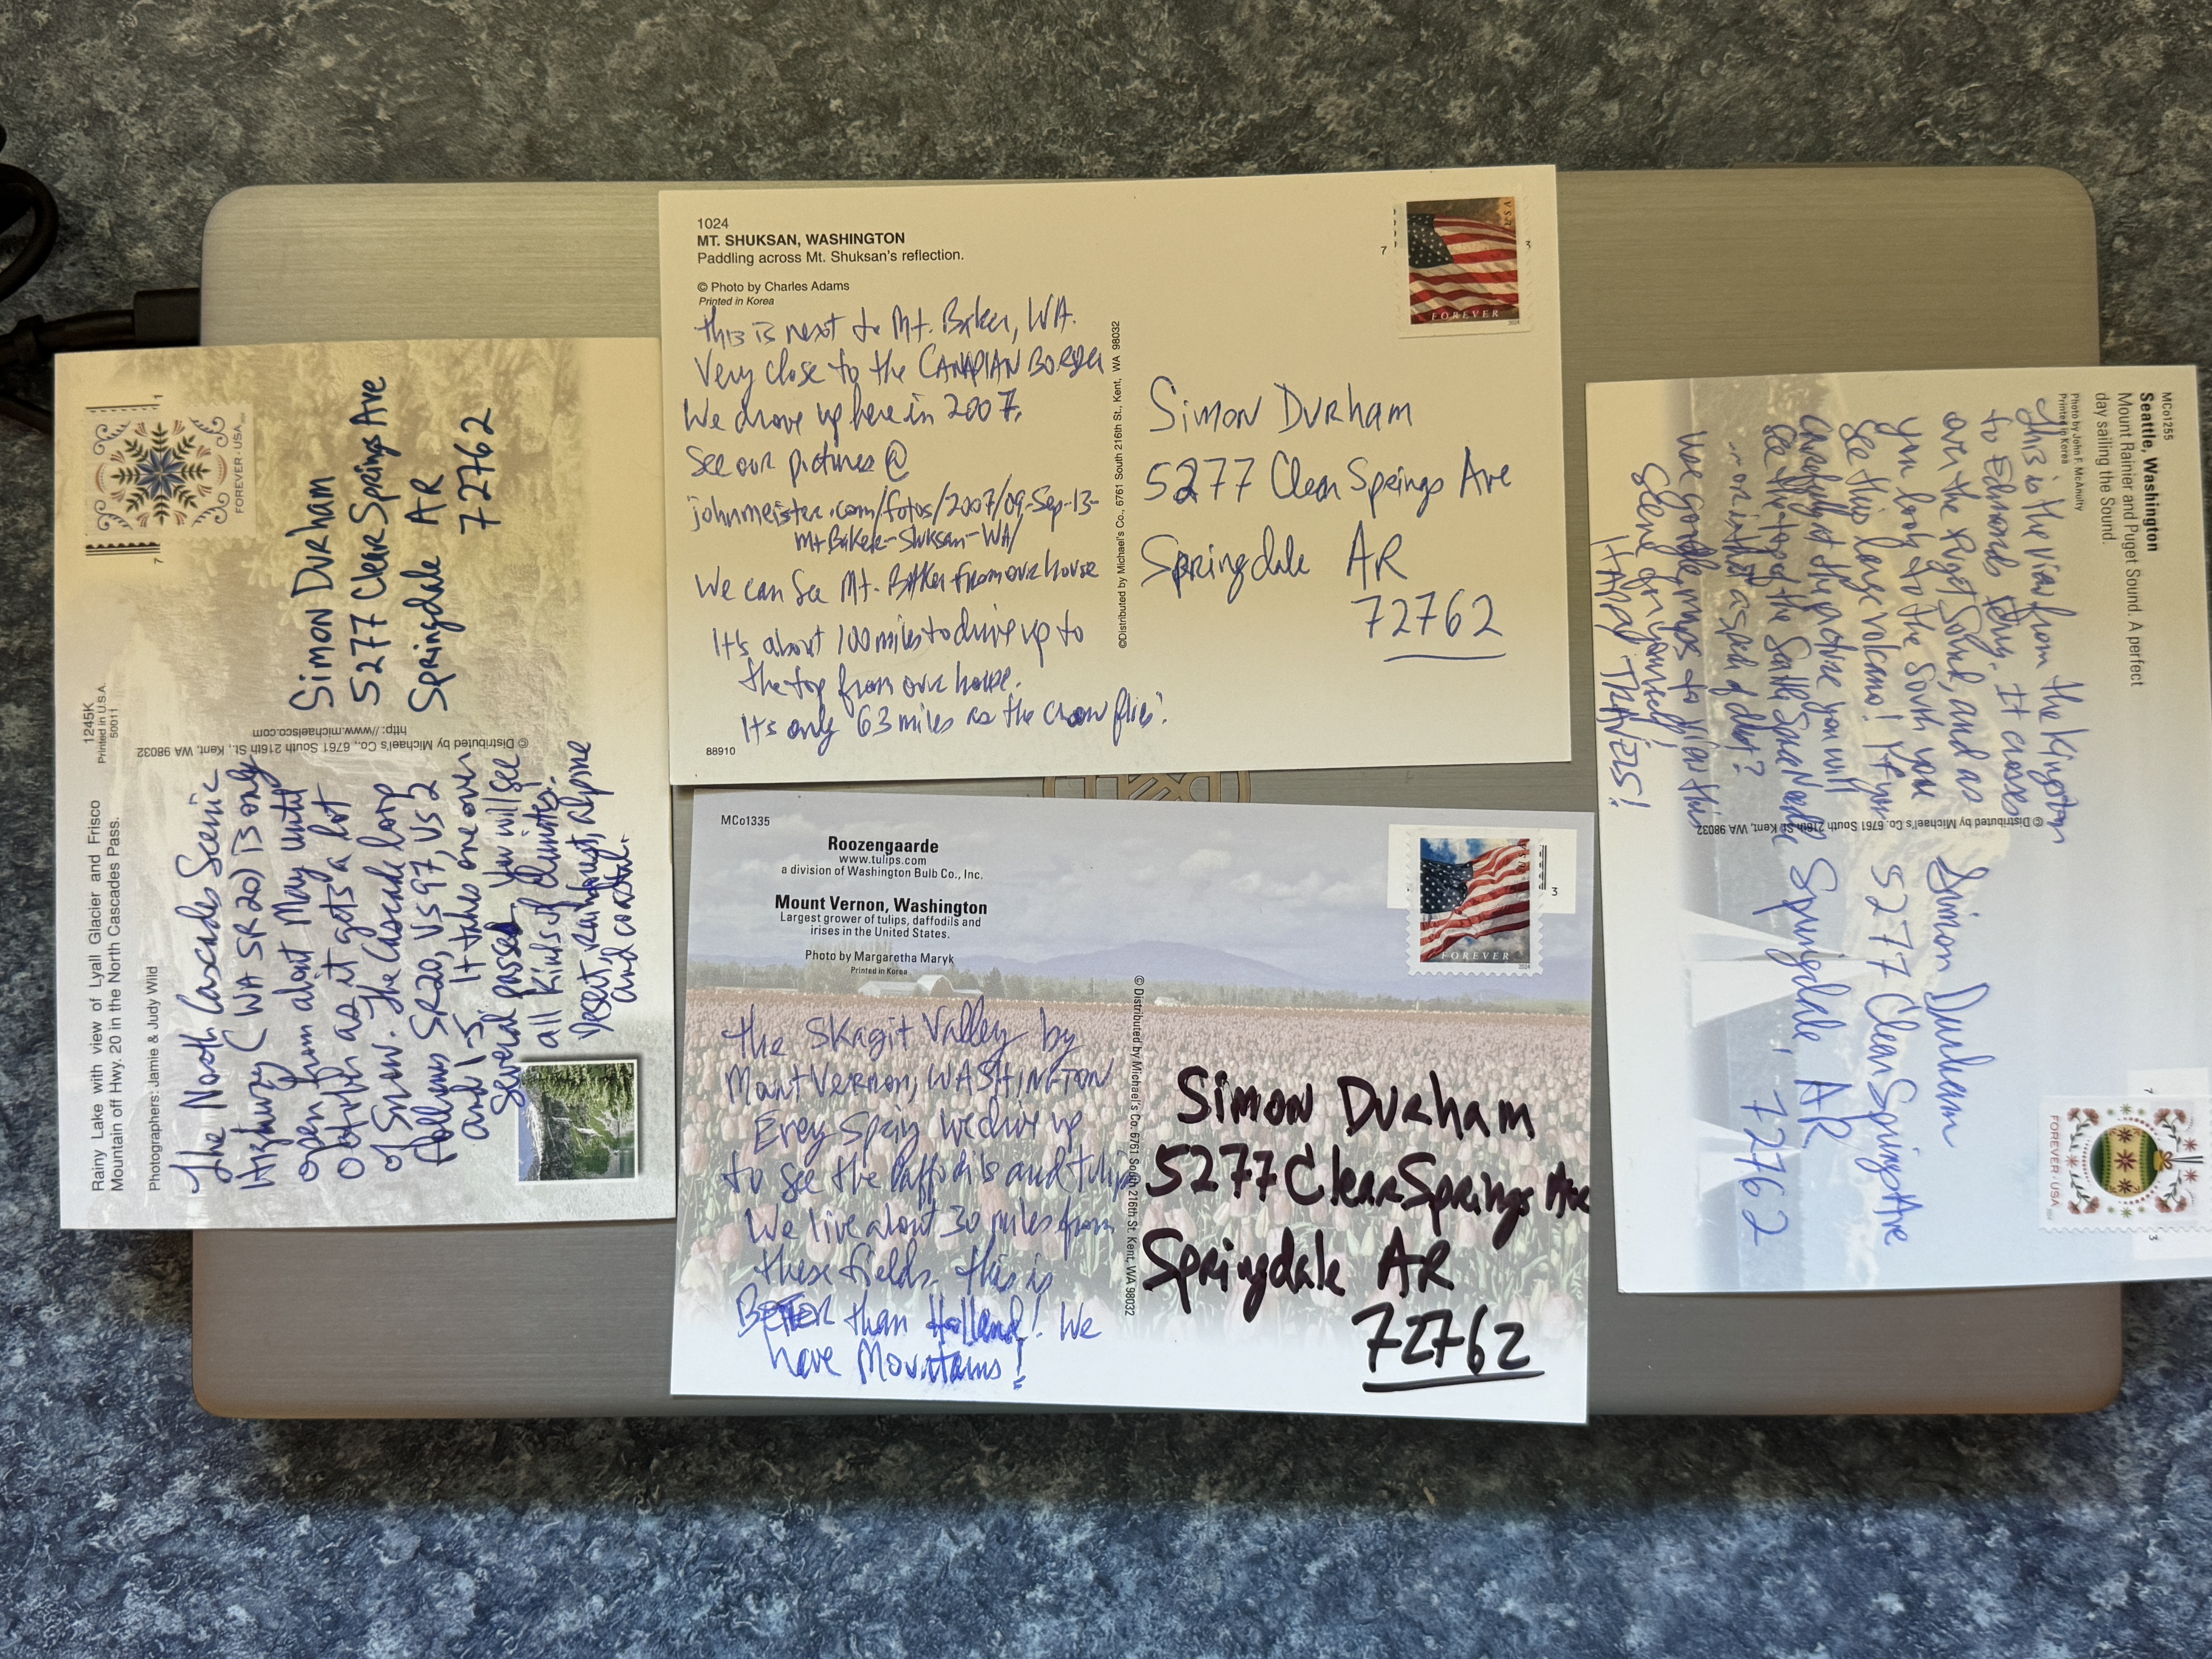 Rainy Lake with view of Lyall Glacier and Frisco
Mountain off Hwy. 20 in the North Cascades Pass.
1245K
Printed in U.S.A.
50011
Photographers: Jamie & Judy Wild
The North Cascades Scenic
Highway (WA SR 20) is only
open from about May until
October as it gets a lot
of snow. The Cascade loop
follows SR20, US 97, US 2
and I-5. It takes one over
several passes. You will see
all kinds of climates!
Desert, rainforest, alpine
and coastal.
© Distributed by Michael's Co., 6761 South 216th St., Kent, WA 98032
http://www.michaelsco.com
FOREVER · USA
7
1
Simon Durham
5277 Clear Springs Ave
Springdale AR
72762
1024
MT. SHUKSAN, WASHINGTON
Paddling across Mt. Shuksan's reflection.
© Photo by Charles Adams
Printed in Korea
this is next to Mt. Baker, WA.
Very close to the CANADIAN BORDER
We drove up here in 2007.
See our pictures @
johnmeister.com/fotos/2007/09-Sep-13-
MtBaker-Shuksan-WA/
We can see Mt. Baker from our house
It's about 100 miles to drive up to
the top from our house.
It's only 63 miles as the crow flies.
88910
©Distributed by Michael's Co., 6761 South 216th St., Kent, WA 98032
USA
FOREVER
2024
7
3
Simon Durham
5277 Clear Springs Ave
Springdale AR
72762
MCo1335
Roozengaarde
www.tulips.com
a division of Washington Bulb Co., Inc.
Mount Vernon, Washington
Largest grower of tulips, daffodils and
irises in the United States.
Photo by Margaretha Maryk
Printed in Korea
the Skagit Valley by
Mount Vernon, WASHINGTON
Every Spring we drive up
to see the Daffodils and tulips
We live about 30 miles from
these fields. this is
BETTER than Holland! We
have Mountains!
© Distributed by Michael's Co. 6761 South 216th St. Kent, WA 98032
USA
FOREVER
2024
3
Simon Durham
5277 Clear Springs Ave
Springdale AR
72762
MCo1255
Seattle, Washington
Mount Rainier and Puget Sound. A perfect
day sailing the Sound.
Photo by John F. McAnulty
Printed in Korea
This is the view from the Kingston
to Edmonds ferry. It crosses
over the Puget Sound, and as
you look to the South you
see this large volcano! If you
carefully at the picture you will
see the top of the Seattle Space Needle
... or is that a speck of dust?
Use google maps to view this
scene for yourself!
HAPPY TRAVELS!
© Distributed by Michael's Co. 6761 South 216th St. Kent, WA 98032
FOREVER · USA
7
3
Simon Durham
5277 Clear Springs Ave
Springdale, AR
72762